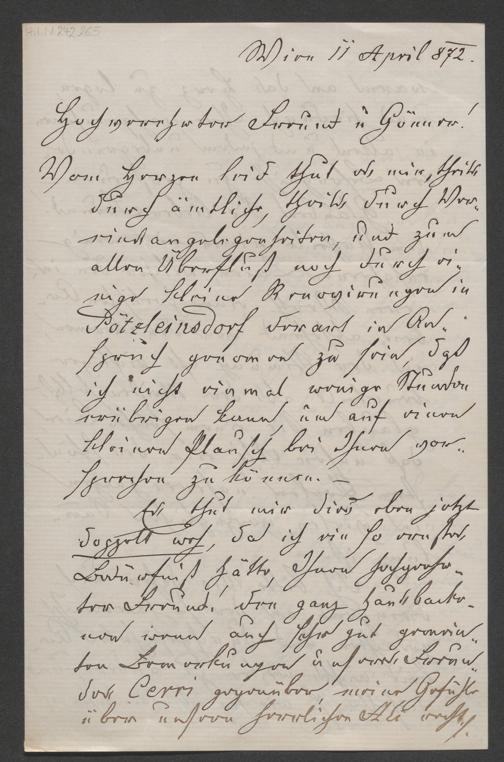 Wien 11 April 872.
Hochverehrter Freund u Gönner!
Vom Herzen leid thut es mir, theils
durch ämtliche, theils durch Ver-
einsangelegenheiten, und zum
allen Überfluß noch durch ei-
nige kleine Renovirungen in
Pötzleinsdorf derart in An-
spruch genommen zu sein, daß
ich nicht einmal wenige Stunden
erübrigen kann, um auf einen
kleinen Plausch bei Ihnen vor-
sprechen zu können. –
Es thut mir dies eben jetzt
doppelt weh, da ich ein so ernstes
Bedürfniß hätte, Ihnen hochgeehr-
ter Freund! den ganz hausbacke-
nen wenn auch sehr gut gemein-
ten Bemerkungen unseres Freun-
des Cerri gegenüber, meine Gefühle
über unseren herrlichen